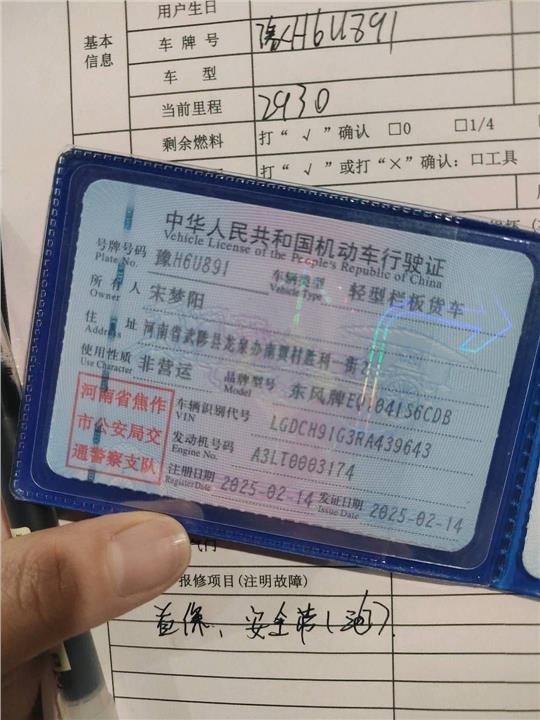 用户生日
基本
信息
车牌号 豫H6U891
车型
当前里程 2930
剩余燃料 打“√”确认 □0 □1/4
打“√”或打“×”确认：□工具
中华人民共和国机动车行驶证
Vehicle License of the People's Republic of China
号牌号码 豫H6U891 车辆类型 轻型栏板货车
Plate No. Vehicle Type
所有人 宋梦阳
Owner
住址 河南省武陟县龙泉办南贾村胜利一街2
Address
使用性质 非营运 品牌型号 东风牌EQ1041S6CDB
Use Character Model
河南省焦作
市公安局交
通警察支队
车辆识别代号 LGDCH91G3RA439643
VIN
发动机号码 A3LT0003174
Engine No.
注册日期 2025-02-14 发证日期 2025-02-14
Register Date Issue Date
报修项目(注明故障)
首保、安全带